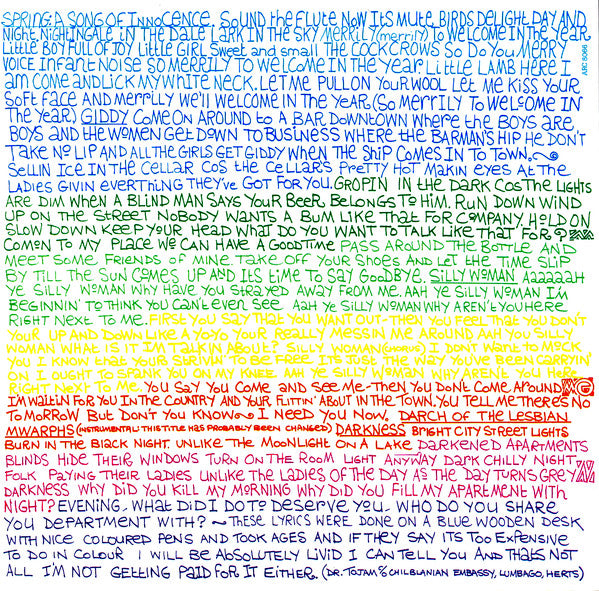 SPRING: A SONG OF INNOCENCE. SOUND the FLUTE NOW ITS MUTE, BIRDS DELIGHT DAY AND
NIGHT, NIGHTINGALE IN THE DALE LARK IN THE SKY MERRILY (merrily) TO WELCOME IN THE YEAR
LITTLE BOY FULL OF JOY LITTLE GIRL SWEET and SMALL THE COCK CROWS SO DO YOU MERRY
VOICE INFANT NOISE SO MERRILY TO WELCOME IN THE YEAR. LITTLE LAMB HERE I
AM COME AND LICK MY WHITE NECK. LET ME PULL ON YOUR WOOL LET ME KISS YOUR
SOFT FACE AND MERRILY WE'LL WELCOME IN THE YEAR (SO MERRILY TO WELCOME IN
THE YEAR) GIDDY COME ON AROUND to A BAR DOWNTOWN WHERE the BOYS ARE
BOYS AND THE WOMEN GET DOWN TO BUSINESS WHERE THE BARMAN'S HIP HE DON'T
TAKE NO LIP AND ALL THE GIRLS GET GIDDY WHEN THE SHIP COMES IN TO TOWN.
SELLIN ICE IN THE CELLAR COS THE CELLARS PRETTY HOT MAKIN EYES AT THE
LADIES GIVIN EVERTHING THEY'VE GOT FOR YOU. GROPIN IN the DARK COS THE LIGHTS
ARE DIM WHEN A BLIND MAN SAYS YOUR BEER BELONGS TO HIM. RUN DOWN WIND
UP ON THE STREET NOBODY WANTS A BUM LIKE THAT FOR COMPANY, HOLD ON
SLOW DOWN KEEP YOUR HEAD WHAT DO YOU WANT TO TALK LIKE THAT FOR?
COMON TO MY PLACE WE CAN HAVE A GOODTIME PASS AROUND THE BOTTLE AND
MEET SOME FRIENDS OF MINE TAKE OFF YOUR SHOES AND LET THE TIME SLIP
BY TILL THE SUN COMES UP AND ITS TIME TO SAY GOODBYE. SILLY WOMAN AAAAAAH
YE SILLY WOMAN WHY HAVE YOU STRAYED AWAY FROM ME. AAH YE SILLY WOMAN I'M
BEGINNIN' TO THINK YOU CAN'T EVEN SEE AAH YE SILLY WOMAN WHY AREN'T YOU HERE
RIGHT NEXT TO ME. FIRST YOU SAY THAT YOU WANT OUT - THEN YOU FEEL THAT YOU DON'T
YOUR UP AND DOWN LIKE A YOYO YOUR REALLY MESSIN ME AROUND, AAH YOU SILLY
WOMAN WHAT IS IT IM TALKIN ABOUT? SILLY WOMAN (CHORUS) I DON'T WANT TO MOCK
YOU I KNOW THAT YOUR STRIVIN' TO BE FREE ITS JUST THE WAY YOU'VE BEEN CARRYIN'
ON I OUGHT TO SPANK YOU ON MY KNEE AAH YE SILLY WOMAN WHY AREN'T YOU HERE
RIGHT NEXT TO ME. YOU SAY YOU COME AND SEE ME - THEN YOU DON'T COME AROUND
I'M WAITIN FOR YOU IN THE COUNTRY AND YOUR FLITTIN' ABOUT IN THE TOWN. YOU TELL ME THERE'S NO
TOMORROW BUT DON'T YOU KNOW I NEED YOU NOW, DARCH OF THE LESBIAN
MWARPHS (INSTRUMENTAL: THIS TITLE HAS PROBABLY BEEN CHANGED) DARKNESS BRIGHT CITY STREET LIGHTS
BURN IN THE BLACK NIGHT. UNLIKE THE MOONLIGHT ON A LAKE DARKENED APARTMENTS
BLINDS HIDE THEIR WINDOWS TURN ON THE ROOM LIGHT ANYWAY DARK CHILLY NIGHT
FOLK PAYING THEIR LADIES UNLIKE THE LADIES OF THE DAY AS THE DAY TURNS GREY
DARKNESS WHY DID YOU KILL MY MORNING WHY DID YOU FILL MY APARTMENT WITH
NIGHT? EVENING. WHAT DID I DO TO DESERVE YOU - WHO DO YOU SHARE
YOU DEPARTMENT WITH? ~ THESE LYRICS WERE DONE ON A BLUE WOODEN DESK
WITH NICE COLOURED PENS AND TOOK AGES AND IF THEY SAY ITS TOO EXPENSIVE
TO DO IN COLOUR I WILL BE ABSOLUTELY LIVID I CAN TELL YOU AND THATS NOT
ALL I'M NOT GETTING PAID FOR IT EITHER. (DR. TOJAM % CHILBLANIAN EMBASSY, LUMBAGO, HERTS)
ARC 8066